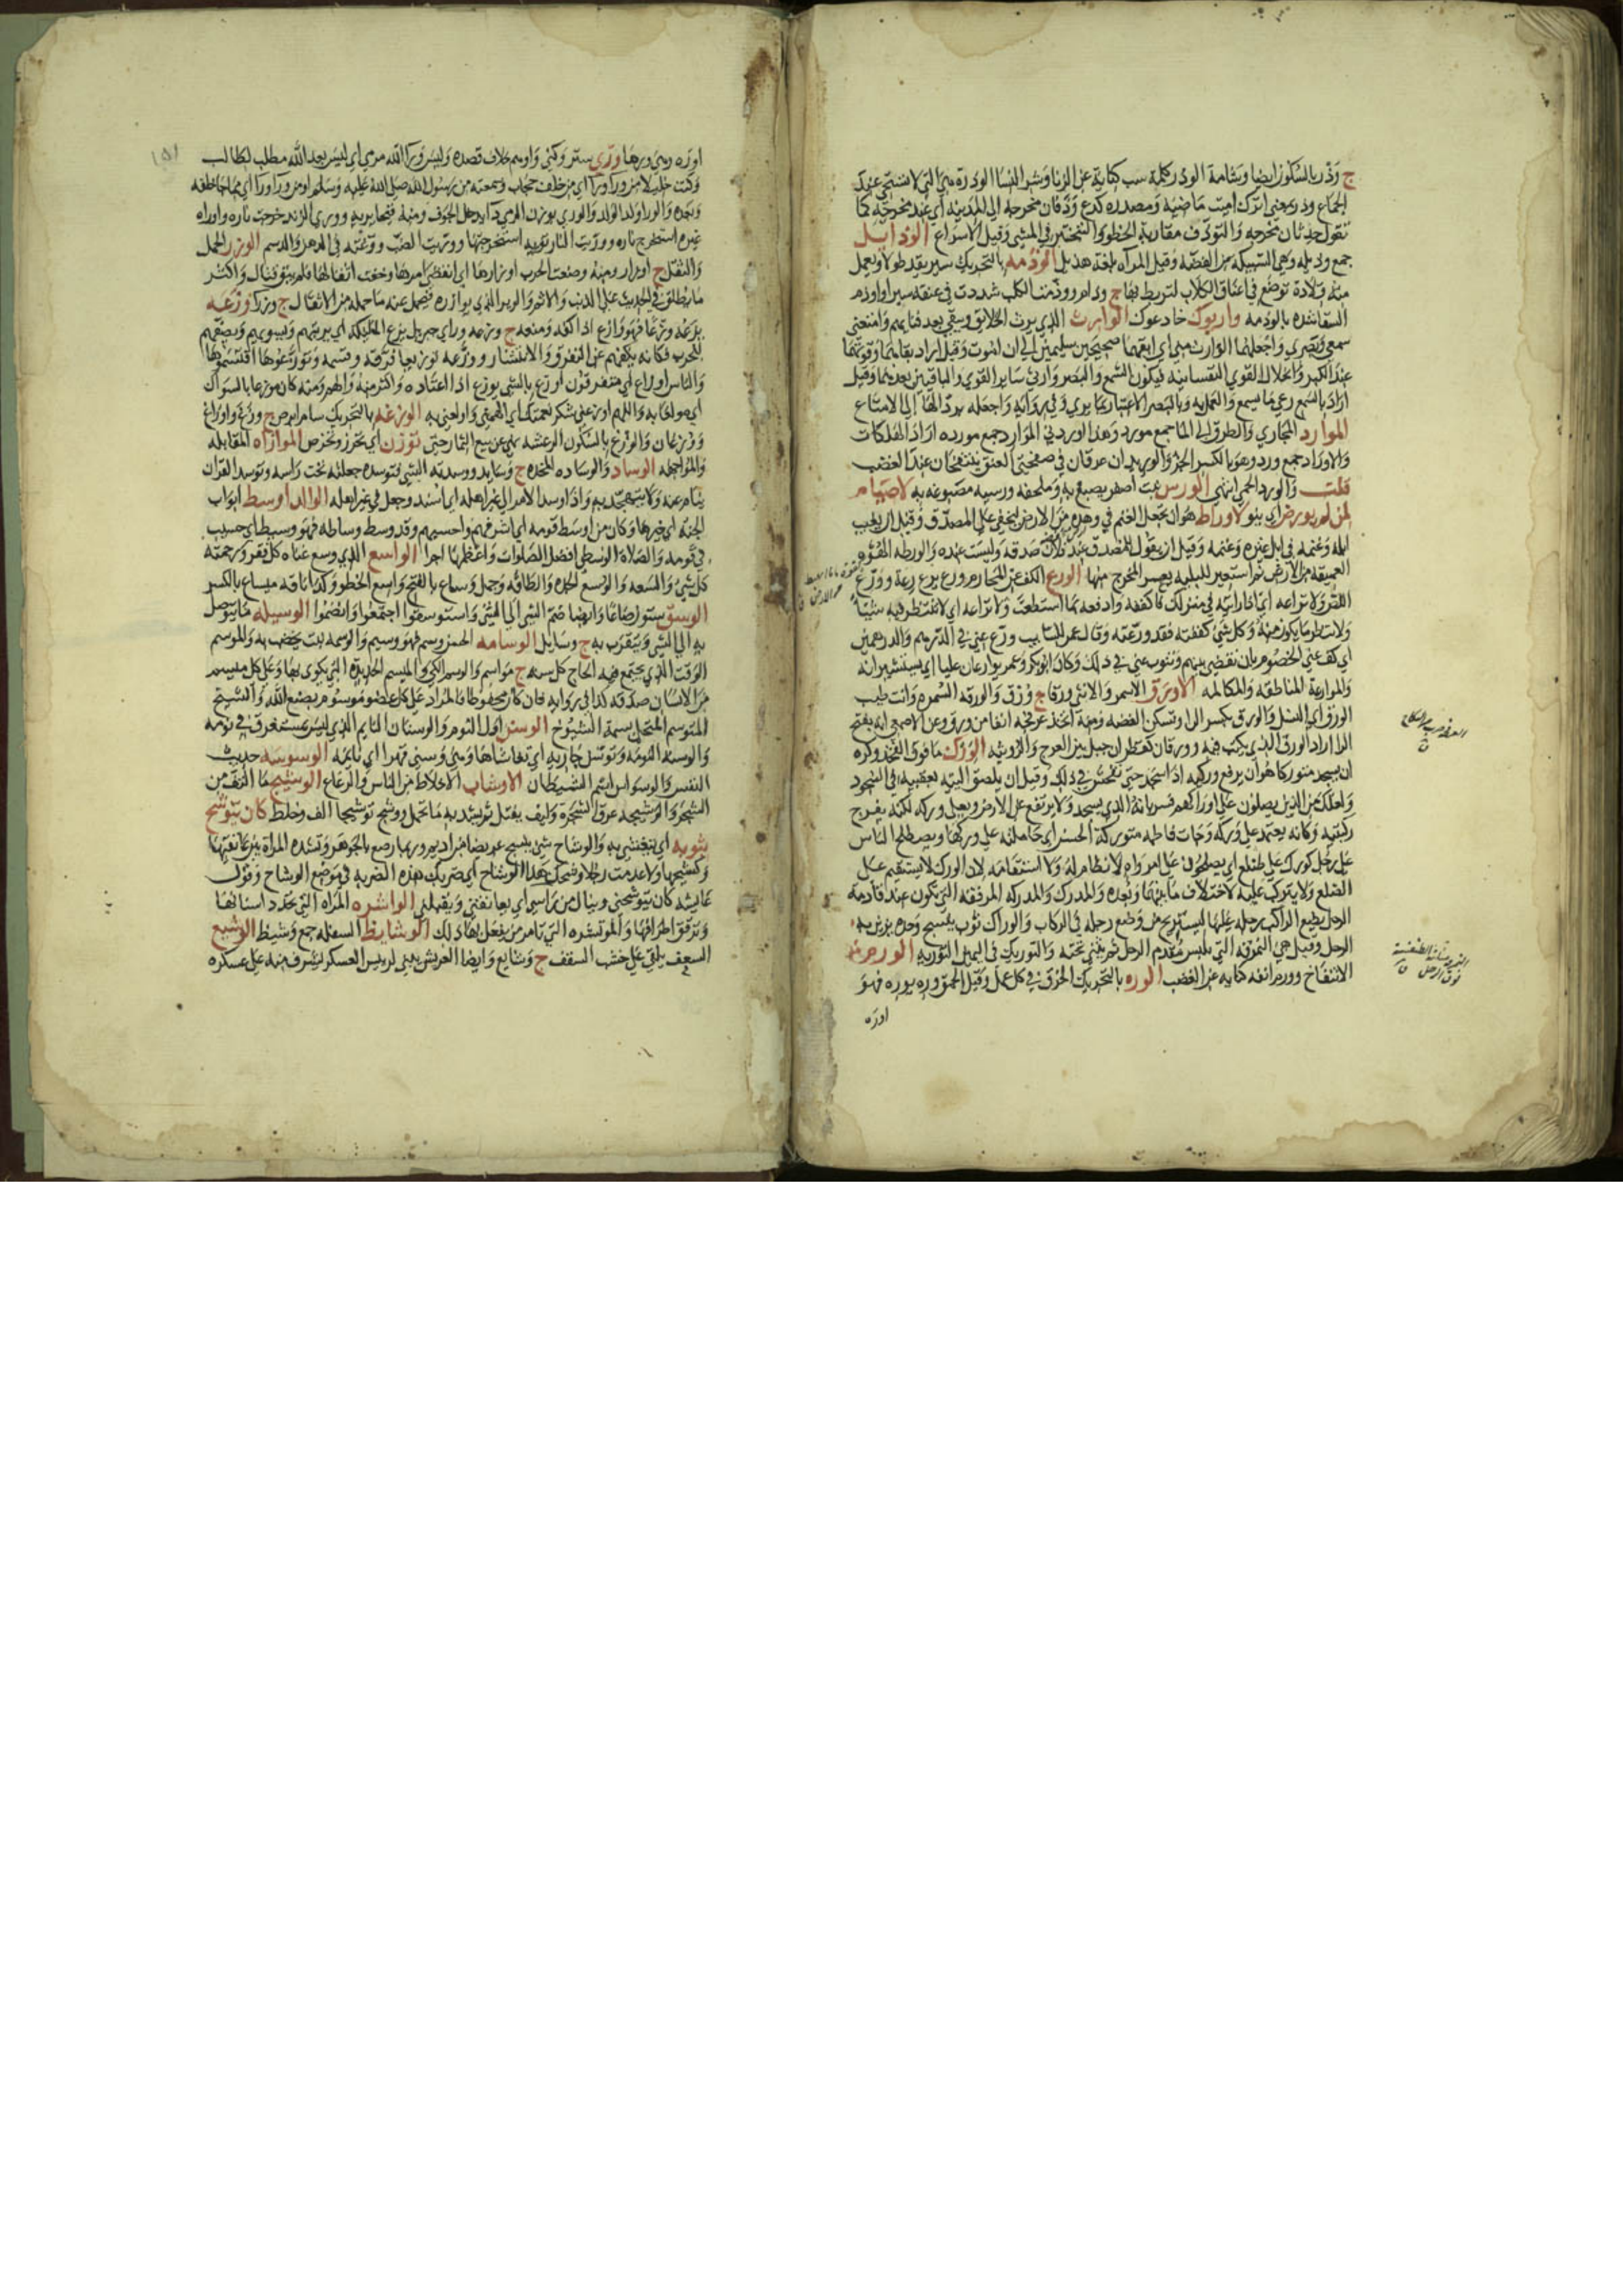 ج وذر بالسكون ايضا ويشامة الوذر كلمة سب كناية عن الزنا وشر النسا الوذرة هي التي لا تستحي عند
الجماع وذر بمعنى اترك اميت ماضيه ومصدره كدع وذفان مخرجه الى المدينه اي عند مخرجه كما
تقول حدثان مخرجه والتوذف مقاربة الخطو والتبختر في المشي وقيل الاسراع الوذايل
جمع وذيله وهي السبيكة من الفضه وقيل المرآه بلغة هذيل الوذمه بالتحريك سير يقد طولا ويعمل
منه قلادة توضع في اعناق الكلاب لتربط بها ج وذام ووذمت الكلب شددت في عنقه سيرا واوذم
السقا شده بالوذمه واربوك خادعوك الوارث الذي يرث الخلايق ويبقى بعد فنايهم وامتعني
سمعي وبصري واجعلهما الوارث مني اي ابقهما صحيحين سليمين الى ان اموت وقيل اراد بقاهما وقوتهما
عند الكبر وانحلال القوي النفسانيه فيكون السمع والبصر وارثي ساير القوي والباقيين بعدهما وقيل
اراد بالسمع وعي ما يسمع والعمل به وبالبصر الاعتبار بما يري وفي روايه واجعله يرد الها الى الامتاع
الموارد المجاري والطرق الى الما جمع مورد وهذا اوردني الموارد جمع مورده اراد الهلكات
والاوراد جمع ورد وهو بالكسر الجز والوريدان عرقان في صفحتي العنق ينتفخان عند الغضب
قلت والورد الحمي انتهى الورس نبت اصفر يصبغ به وملحفه ورسيه مصبوغه به لا صيام
لمن لم يورض اي ينو لا وراط هو ان تجعل الغنم في وهدة من الارض لتخفى على المصدق وقيل ان يغيب
ابله وغنمه في ابل غيره وغنمه وقيل ان يقول للمصدق عند فلان صدقه وليست عنده والورطه الهوه
العميقه من الارض ثم استعير للبليه يعسر المخرج منها الورع الكف عن المحارم ورع يرع رعة وورع
اللص ولا تراعه اي اذا رايته في منزلك فاكففه وادفعه بما استطعت ولا تراعه اي لا تنتظر فيه شيئا
ولا تنظر ما يكون منه وكل شي كففته فقد ورعته وقال عمر للسايب ورع عني في الدرهم والدرهمين
اي كف عني الخصوم بان تقضي بينهم وتنوب عني في ذلك وكان ابوبكر وعمر يوارعان عليا اي يستشيرانه
والموارعة المناطقه والمكالمه الاورق الاسمر والانثى ورقا ج ورق والورقه السمره وانت طيب
الورق اي النسل والورق بكسر الرا وتسكن الفضه ومنه اتخذ عرفجه انفا من ورق وعن الاصمعي انه بفتح
الرا اراد الورق الذي يكتب فيه وورقان كقطران جبل بين العرج والرويثه الورك ما فوق الفخذ وكره
ان يسجد متوركا هو ان يرفع وركيه اذا سجد حتى يفحش في ذلك وقيل ان يلصق اليتيه بعقبيه في السجود
ولعلك من الذين يصلون على اوراكهم فسر بانه الذي يسجد ولا يرتفع عن الارض ويعلي وركه لكنه يفرج
ركبتيه وكانه يعتمد على وركه وجات فاطمه متوركة الحسن اي حاملته على وركها ويصطلح الناس
على رجل كورك على ضلع اي يصطلحون على امر واه لا نظام له ولا استقامه لان الورك لا يستقيم على
الضلع ولا يتركب عليه لاختلاف ما بينهما وبعده والمورك والموركه المرفقه التي تكون عند قادمة
الرحل يضع الراكب رجله عليها ليستريح من وضع رجله في الركاب والوراك ثوب ينسج وحده يزين به
الرحل وقيل هي النمرقه التي تلبس مقدم الرحل ثم تثني تحته والتوريك في اليمين التوريه الورم
الانتفاخ وورم انفه كنايه عن الغضب الوره بالتحريك الخرق في كل عمل وقيل الحمق وره يوره فهو
اوره
اوره وهي ورها وري ستر وكنى واوهم خلاف قصده وليس ورا الله مرمى اي ليس بعد الله مطلب لطالب
وكنت خليلا من ورا ورا اي من خلف حجاب وسمعته من رسول الله صلى الله عليه وسلم او من ورا ورا اي ممن جا خلفه
وبعده والورا ولد الولد والوري بوزن الرمي دا يدخل الجوف ومنه قيحا يريه ووري الزند خرجت ناره واوراه
غيره استخرج ناره ووريت النار توريه استخرجتها ووريت الضب وروغته في الدهن والدسم الوزر الحمل
والثقل ج اوزار ومنه وضعت الحرب اوزارها اي انقضى امرها وخفت اثقالها فلم يبق قتال واكثر
ما يطلق في الحديث على الذنب والاثم والوزير الذي يوازره فيحمل عنه ما حمله من الاثقال ج وزرا وزعه
يزعه وزعا فهو وازع اذا كفه ومنعه ج وزعه وراي جبريل يزع الملئكه اي يرتبهم ويسويهم ويصفهم
للحرب فكانه يكفهم عن التفرق والانتشار ووزعه توزيعا فرقه وقسمه وتوزعوها اقتسموها
والناس اوزاع اي متفرقون اوزع بالشي يوزع اذا اعتاده واكثر منه والهم ومنه كان موزعا بالسواك
اي مولعا به واللهم اوزعني شكر نعمتك اي الهمني واولعني به الوزغه بالتحريك سام ابرص ج وزغ واوزاغ
ووزغان والوزغ بالسكون الرعشه نهى عن بيع الثمار حتى توزن اي تحرز وتخرص الموازاه المقابله
والمواجهه الوساد والوساده المخده ج وسايد ووسدته الشي فتوسده جعلته تحت راسه وتوسد القران
ينام عنه ولا يتهجد به واذا وسد الامر الى غير اهله اي اسند وجعل في غير اهله الوالد اوسط ابواب
الجنه اي خيرها وكان من اوسط قومه اي اشرفهم واحسبهم وقد وسط وساطه فهو وسيط اي حسيب
في قومه والصلاة الوسطى افضل الصلوات واعظمها اجرا الواسع الذي وسع غناه كل فقر ورحمته
كل شي والسعه والوسع الجده والطاقه وجمل وساع بالفتح واسع الخطو وكذا ناقه ميساع بالكسر
الوسق ستون صاعا وايضا ضم الشي الى الشي واستوسقوا اجتمعوا وانضموا الوسيله ما يتوصل
به الى الشي ويتقرب به ج وسايل الوسامه الحسن وسم فهو وسيم والوسمه نبت يخضب به والموسم
الوقت الذي يجتمع فيه الحاج كل سنه ج مواسم والوسم الكي والميسم الحديدة التي يكوى بها وعلى كل ميسم
من الانسان صدقه كذا في روايه فان كان محفوظا فالمراد على كل عضو موسوم بصنع الله والشيخ
المتوسم المتحلي بسمة الشيوخ الوسن اول النوم والوسنان النايم الذي ليس بمستغرق في نومه
والوسنه النومه وتوسن جاريه اي تغشاها وهي وسنى قهرا اي نايمه الوسوسه حديث
النفس والوسواس اسم الشيطان الاوشاب الاخلاط من الناس والرعاع الوشيج ما التف من
الشجر والوشيجه عرق الشجره وليف يفتل ثم يشد به ما تحمل ووشج توشيجا الف وخلط كان يتوشح
بثوبه اي يتغشى به والوشاح شي ينسج عريضا من اديم وربما رصع بالجوهر وتشده المراة بين عاتقيها
وكشحيها ولا عدمت رجلا وشحك هذا الوشاح اي ضربك هذه الضربه في موضع الوشاح وقول
عايشه كان يتوشحني وينال من راسي اي يعانقني ويقبلني الواشره المراه التي تحدد اسنانها
وترقق اطرافها والموتشره التي تامر من يفعل بها ذلك الوشايظ السفله جمع وشيظ الوشيع
السعف يلقى على خشب السقف ج وشايع وايضا العريش يبنى لرييس العسكر يشرف منه على عسكره